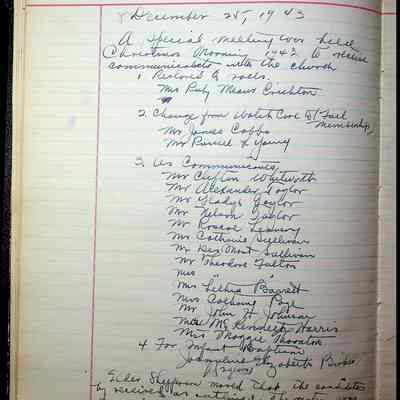 December 25, 1943
A special meeting was held
Christmas Morning 1943 to receive
communicants with the church
1. Restored to rolls.
Mrs Ruby Means Crichton
2. Change from Watch Care to Full
Membership
Mr James Cobbs
Mr Russell L Young
3. As Communicants
Mr Clifton Whitworth
Mr Alexander Taylor
Mr Gladys Taylor
Mr Nelson Taylor
Mr Roscoe
Mr Catherine Sullivan
Mr Sullivan
Mr Theodore Felton
Mrs " "
Mrs Lethia Barrett
Mrs Page
Mr John H. Johnson
McKennely Harris
Mrs Maggie Thornton
4 For Infant Baptism
Jacqueline Elizabeth
Elder Shepperson moved that the
be received as outlined. The motion was